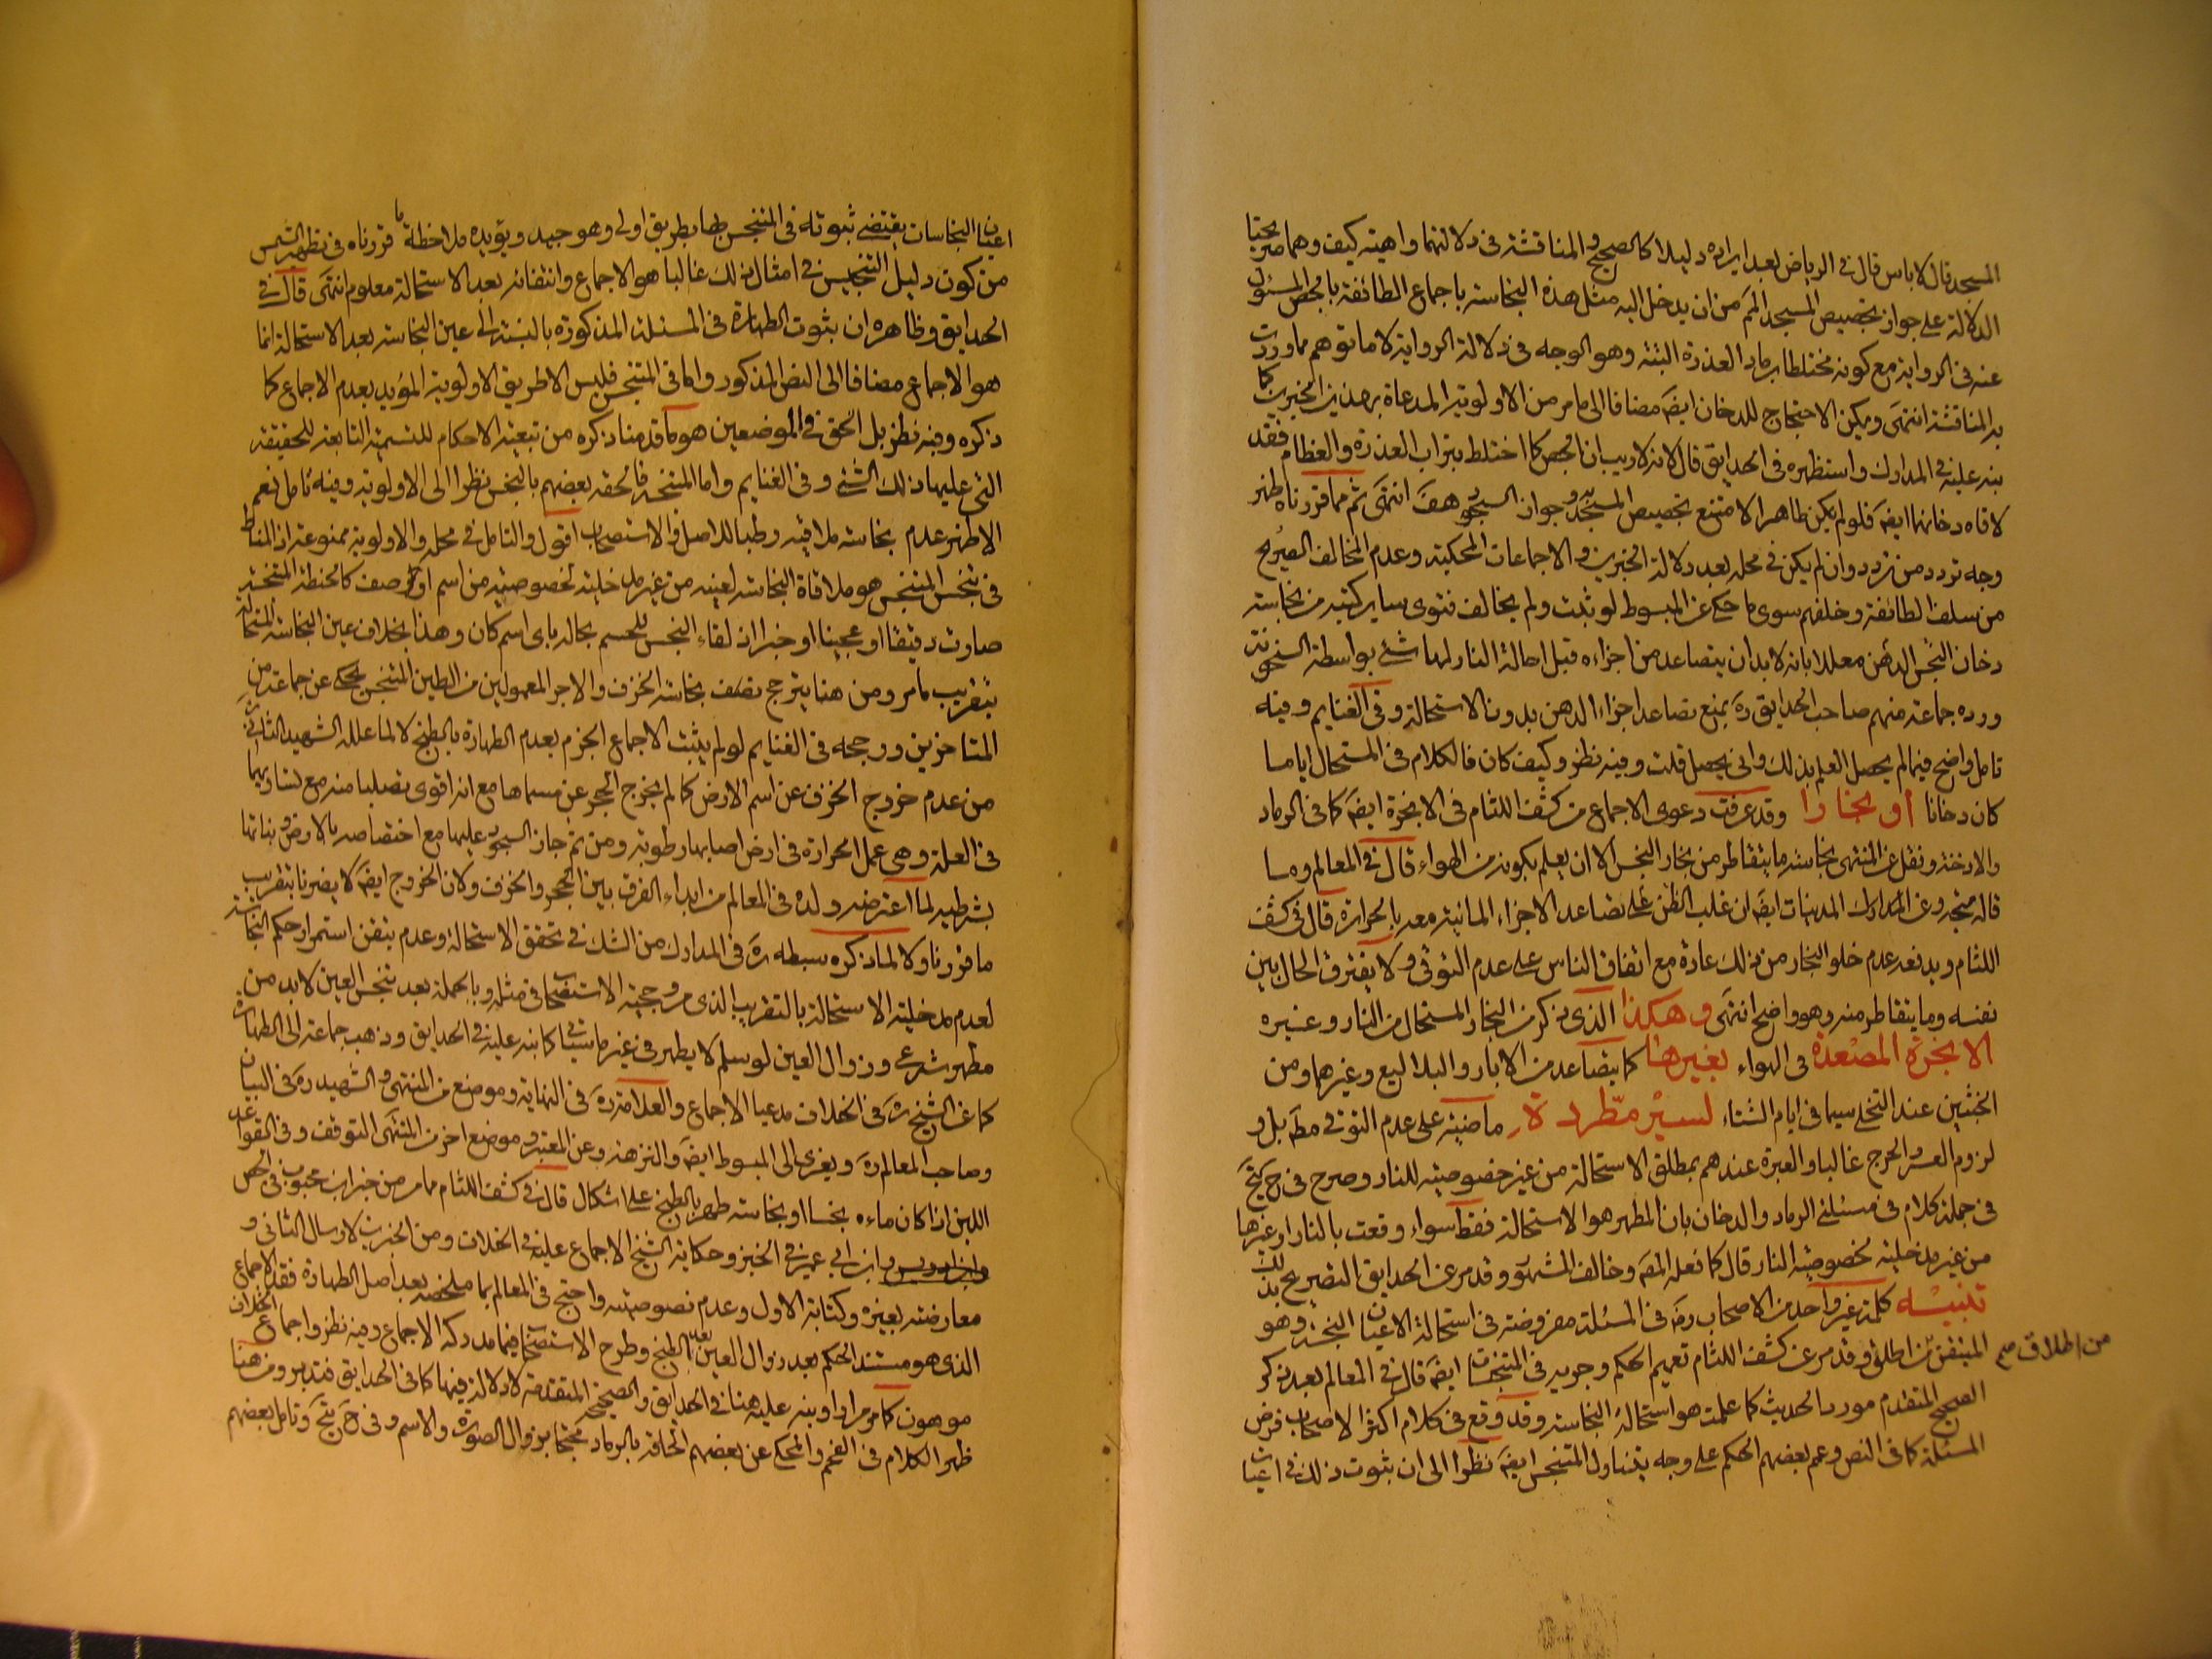 المسجد قال لا باس قال في الرياض بعد ايراده دليلا كالصحيح والمناقشة في دلالتهما واهية كيف وهما صريحتا
الدلالة على جواز تجصيص المسجد من ان يدخل اليه مثل هذه النجاسة باجماع الطائفة بالجص المسئول
عنه في الرواية مع كونه مختلطا برماد العذرة البتة وهو الوجه في دلالة الرواية لا ما توهم مما وردت
به المناقشة انتهى ويمكن الاحتجاج للدخان ايضَ مضافا الى ما مر من الاولوية المدعاة بهذين الخبرين كما
نبه عليه في المدارك واستظهره في الحدايق قال لانه لا ريب ان الجص كما اختلط بتراب العذرة والعظام فقد
لاقاه دخانهما ايضَ فلو لم يكن طاهرا لامتنع تجصيص المسجد به وجواز السجود هفَ انتهى ثم مما قررناه ظهر
وجه تردد من تردد وان لم يكن في محله بعد دلالة الخبرين والاجماعات المحكية وعدم المخالف الصريح
من سلف الطائفة وخلفهم سوى ما حكي عن المبسوط لو ثبت ولم يخالف فتوى ساير كتبه من نجاسة
دخان النجس الدهن معللا بانه لا بد ان يتصاعد من اجزاءه قبل احالة النار لها شئ بواسطة السخونة
ورده جماعة منهم صاحب الحدايق رهَ بمنع تصاعد اجزاء الدهن بدون الاستحالة وفي الغنايم وفيه
تامل واضح فيما لم يحصل العلم بذلك وانى يحصل قلت وفيه نظر وكيف كان فالكلام في المستحال اياما
كان دخانا أو بخارا وقد عرفت دعوى الاجماع من كشف اللثام في الابخرة ايضَ كما في الرماد
والادخنة ونقل عن المنتهى نجاسة ما يتقاطر من بخار النجس الا ان يعلم بكونه من الهواء قال في المعالم وما
قاله متجه وعن المدارك المدنيات ايضَ ان غلب الظن على تصاعد الاجزاء المائية معه بالحرارة قال في كشف
اللثام ويدفعه عدم خلو البخار من ذلك عادة مع اتفاق الناس على عدم التوقي ولا يفترق الحال بين
نفسه وما يتقاطر منه وهو واضح انتهى وهكذا الذي ذكر من البخار المستحال من النار وغيره
الابخرة المصعدة في الهواء بغيرها كما يتصاعد من الابار والبلاليع وغيرهما ومن
الخبثين عند التخلي سيما في ايام الشتاء لسير مطّردة ماضية على عدم التوقي مطَ بل و
لزوم العسر والحرج غالبا والعبرة عندهم بمطلق الاستحالة من غير خصوصية للنار وصرح في ح
في جملة كلام في مسئلتي الرماد والدخان بان المطهر هو الاستحالة فقط سواء وقعت بالنار او غيرها
من غير مدخلية لخصوصية النار قال كما فعله المصَ وخالف المشهور وقد مر عن الحدايق التصريح بذلك
تنبيسه كلمة غير واحد من الاصحاب رضَ في المسئلة مفروضة في استحالة الاعيان النجسة وهو
المتيقن من اطلاق وقد مر عن كشف اللثام تعميم الحكم وجوبه في المتنجسات ايضَ قال في المعالم بعد ذكر
من اطلاق صح
الصحيح المتقدم مورد الحديث كما علمت هو استحالة النجاسة وقد وقع في كلام اكثر الاصحاب فرض
المسئلة كما في النص وعمم بعضهم الحكم على وجه يتناول المتنجس ايضَ نظرا الى ان ثبوت ذلك في اعيان
اعيان النجاسات يقتضي ثبوته في المتنجس بها بطريق اولى وهو جيد ويؤيده ملاحظة ما قررناه في تطهير الشمس
من كون دليل التنجيس في امثال ذلك غالبا هو الاجماع وانتفائه بعد الاستحالة معلوم انتهى قال في
الحدايق وظاهره ان ثبوت الطهارة في المسئلة المذكورة بالنسبة الى عين النجاسة بعد الاستحالة انما
هو الاجماع مضافا الى النص المذكور واما في المتنجس فليس الا طريق الاولوية المؤيد بعدم الاجماع كما
ذكره وفيه نظر بل الحق في الموضعين هو ما قدمنا ذكره من تبعية الاحكام للتسمية التابعة للحقيقة
التي عليها ذلك الشئ وفي الغنايم واما المتنجسة فالحقه بعضهم بالنجس نظرا الى الاولوية وفيه تامل نعم
الاظهر عدم نجاسة ملاقيه رطبا للاصل والاستصحاب اقول والتامل في محله والاولوية ممنوعة اذ المناط
في تنجس المتنجس هو ملاقاة النجاسة لعينه من غير مدخلية لخصوصية من اسم او وصف كالحنطة المتنجسة
صارت دقيقا او عجينا او خبزا اذ لقاء النجس للجسم بحاله باى اسم كان وهذا بخلاف عين النجاسة المستحالة
بتقريب ما مر ومن هنا يترجح نجاسة الخزف والاجر المعمولين من الطين المتنجس يحكى عن جماعة من
المتاخرين ورجحه في الغنايم لو لم يثبت الاجماع الجزم بعدم الطهارة بالطبخ لا لما علله الشهيد الثاني
من عدم خروج الخزف عن اسم الارض كما لم يخرج الحجر عن مسماها مع انه اقوى تصلبا منه مع تساويهما
في العلة وهي عمل الحرارة في ارض اصابها رطوبة ومن ثم جاز السجود عليها مع اختصاصه بالارض ونباتها
بشرطيه لما اعترضه ولده في المعالم من ابداء الفرق بين الحجر والخزف ولان الخروج ايضَ لا يضرنا بتقريب
ما قررنا ولا لما ذكره سبطه رهَ في المدارك من الشك في تحقق الاستحالة وعدم تيقن استمرار حكم النجاسة
لعدم مدخلية الاستحالة بالتقريب الذي مر وحجية الاستصحاب في مثله وبالجملة بعد تنجس العين لا بد من
مطهر شرعي وزوال العين لو سلم لا يطهر في غير ما كما نبه عليه في الحدايق وذهب جماعة الى الطهارة
كما عن الشيخ رهَ في الخلاف مدعيا الاجماع والعلامة رهَ في النهاية وموضع من المنتهى والشهيد رهَ في البيان
وصاحب المعالم رهَ ويعزى الى المبسوط ايضَ والنزهة وعن المعتبر وموضع اخر من المنتهى التوقف وفي القواعد
اللبن اذا كان ماءه نجسا او نجاسة طهر بالطبخ على اشكال قال في كشف اللثام مما مر من خبر ابن محبوب في الجص
ابن ابي عمير في الخبز وحكاية الشيخ الاجماع عليه في الخلاف ومن الخبرين لارسال الثاني و
معارضته بغيره وكتابة الاول وعدم نصوصيته واحتج في المعالم بما ملخصه بعد اصل الطهارة فقد الاجماع
الذي هو مستند الحكم بعد زوال العين بعد الطبخ وطرح الاستصحاب فيما مدركه الاجماع وفيه نظر واجماع الخلاف
موهون كما مر مرارا ونبه عليه هنا في الحدايق والصحيح المتقدمة لا دلالة فيها كما في الحدايق فتدبر ومن هنا
ظهر الكلام في الفحم والمحكي عن بعضهم الحاقه بالرماد محتجا بزوال الصورة والاسم وفي ح وتامل بعضهم